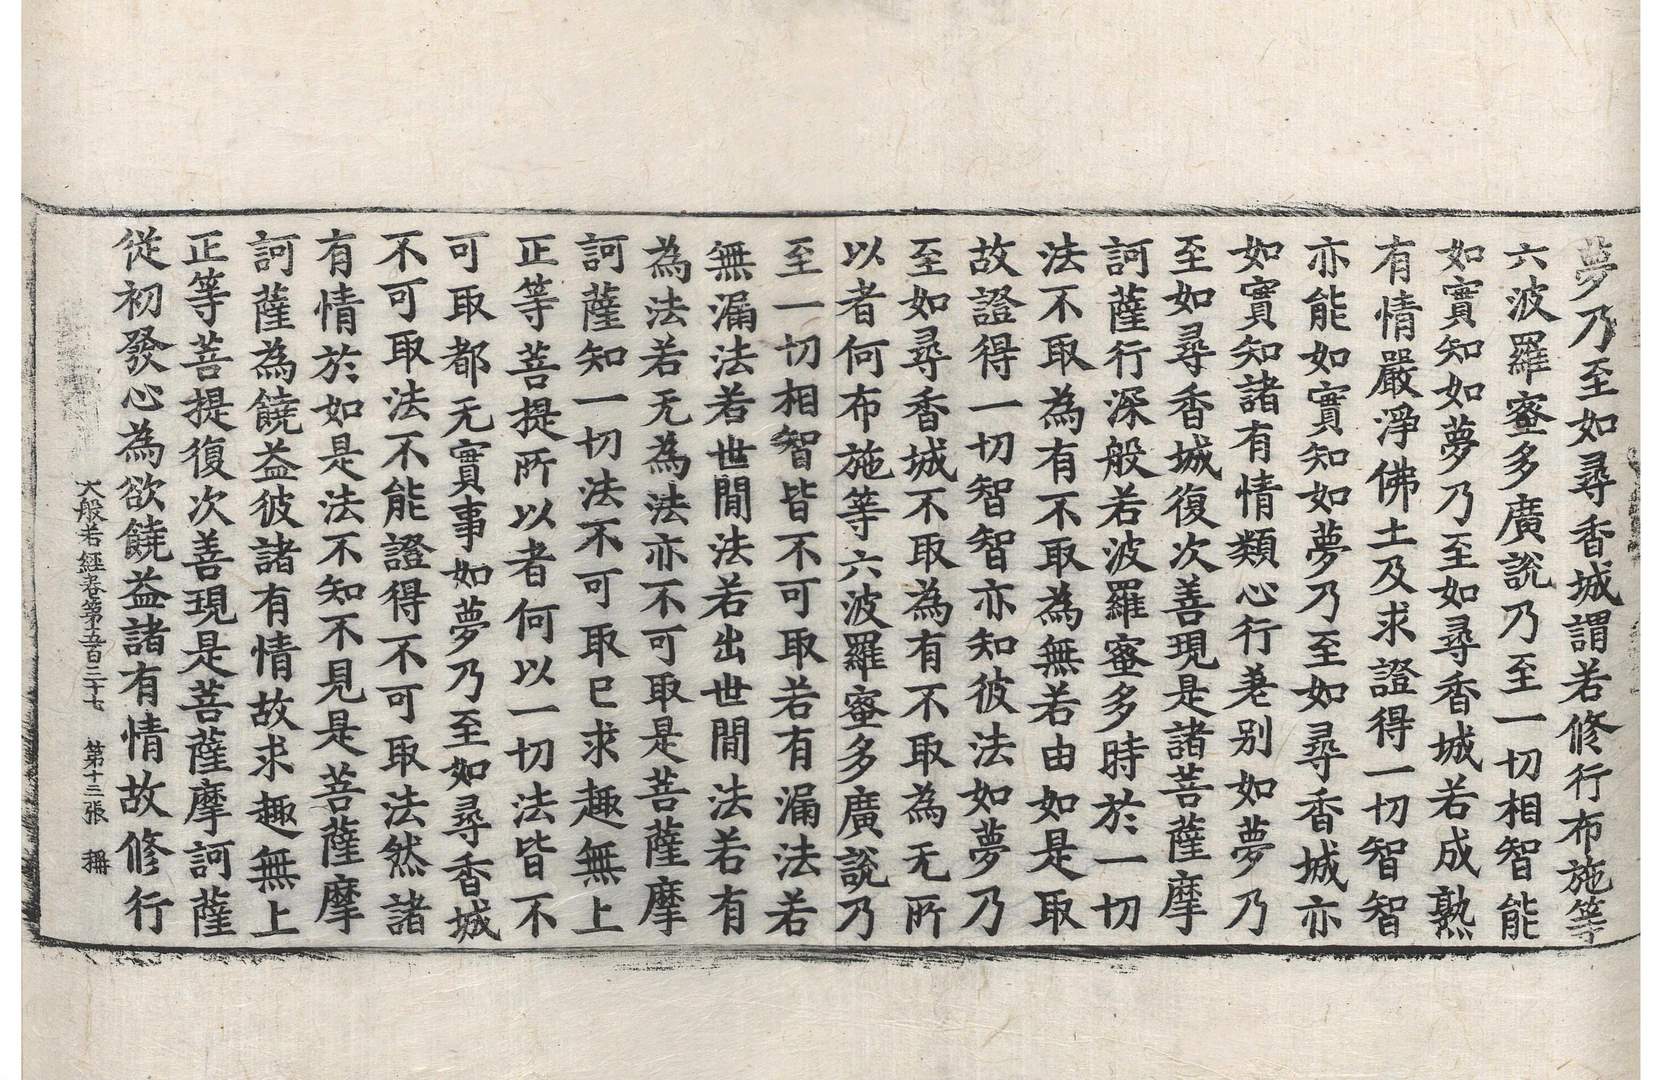 夢乃至如尋香城謂若修行布施等
六波羅蜜多廣說乃至一切相智能
如實知如夢乃至如尋香城若成熟
有情嚴淨佛土及求證得一切智智
亦能如實知如夢乃至如尋香城亦
如實知諸有情類心行差别如夢乃
至如尋香城復次善現是諸菩薩摩
訶薩行深般若波羅蜜多時於一切
法不取為有不取為無若由如是取
故證得一切智智亦知彼法如夢乃
至如尋香城不取為有不取為无所
以者何布施等六波羅蜜多廣說乃
至一切相智皆不可取若有漏法若
無漏法若世間法若出世間法若有
為法若无為法亦不可取是菩薩摩
訶薩知一切法不可取已求趣無上
正等菩提所以者何以一切法皆不
可取都无實事如夢乃至如尋香城
不可取法不能證得不可取法然諸
有情於如是法不知不見是菩薩摩
訶薩為饒益彼諸有情故求趣無上
正等菩提復次善現是菩薩摩訶薩
從初發心為欲饒益諸有情故修行
大般若經卷第五百二十七 第十三張